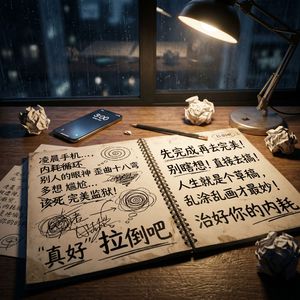 3:00
凌晨手机...
内耗循环
别人的眼神 歪曲十八弯
多想 尴尬...
该死 完美监狱!
"真好" 拉倒吧
先完成再去完美!
别瞎想! 直接去搞!
人生就是个草稿,
乱涂乱画才最妙!
治好你的内耗